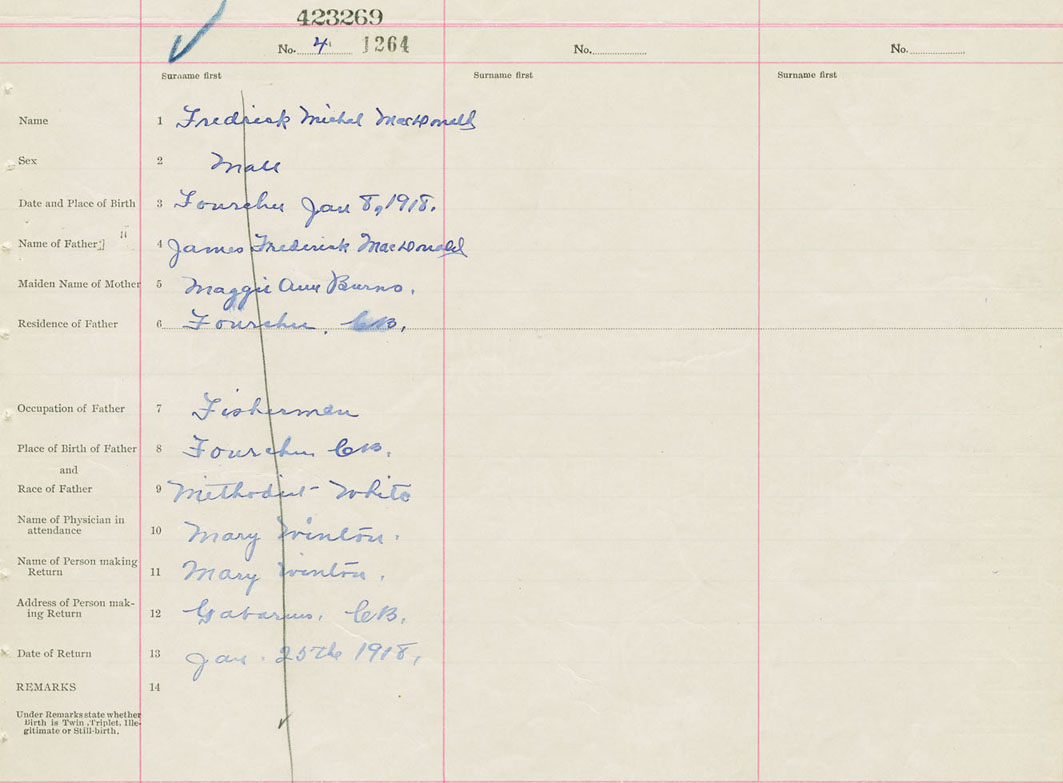 423269
No. 4 1264
No.
No.
Surname first
Surname first
Surname first
Name 1 Fredrick Michel MacDonald
Sex 2 Male
Date and Place of Birth 3 Fourchu Jan 8, 1918.
Name of Father 4 James Frederick MacDonald
Maiden Name of Mother 5 Maggie Ann Burns.
Residence of Father 6 Fourchu, CB.
Occupation of Father 7 Fisherman
Place of Birth of Father 8 Fourchu CB.
and
Race of Father 9 Methodist - White
Name of Physician in
attendance 10 Mary Winton.
Name of Person making
Return 11 Mary Winton.
Address of Person mak-
ing Return 12 Gabarus, CB.
Date of Return 13 Jan. 25th 1918,
REMARKS 14
Under Remarks state whether
Birth is Twin, Triplet, Ille-
gitimate or Still-birth.